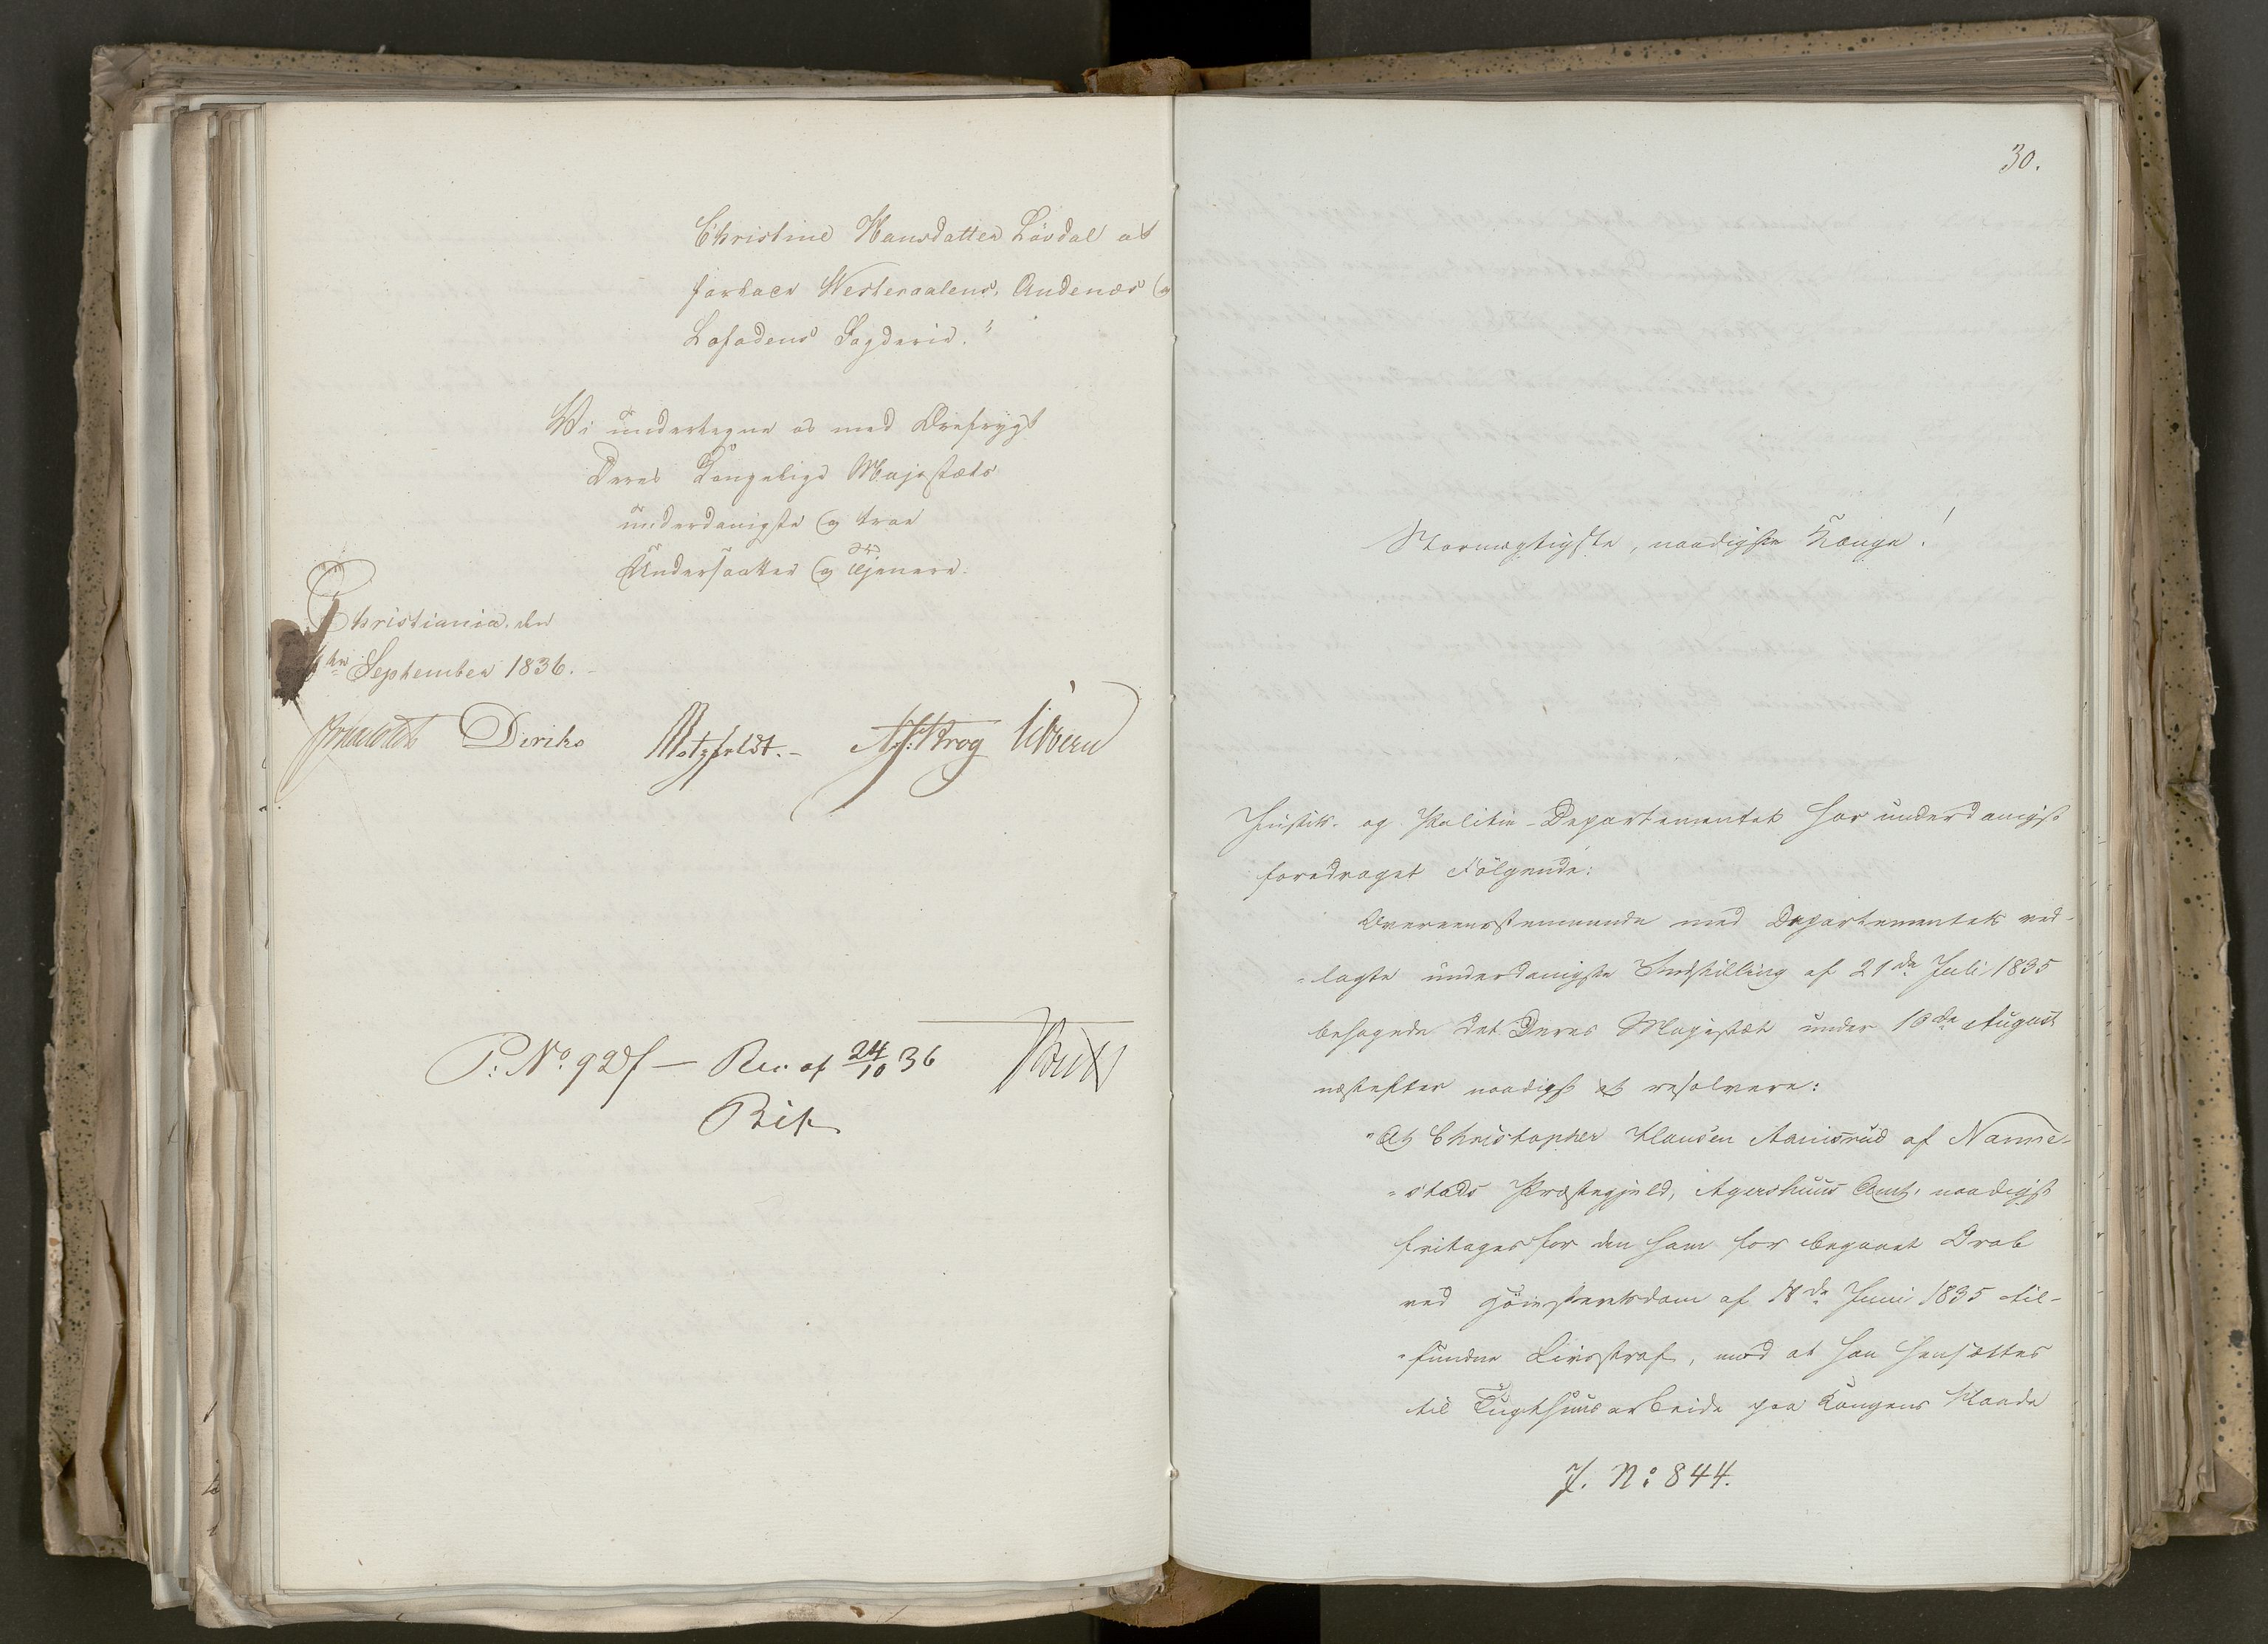 Christine Hansdatter Lövdal at
forlade Westeraalens, Andenæs og
Lofodens Fogderie."
Vi undertegne os med Ærefrygt
Deres Kongelige Majestæts
underdanigste og troe
Undersaatter og Tjenere.
Christiania, den
September 1836.
Diriks Motzfeldt. Krog Vibe
P: No. 927/ — Res. af 24/10 36
30.
Stormægtigste, naadigste Konge!
Justits- og Politie-Departementet har underdanigst
foredraget Følgende:
Overeensstemmende med Departementets ved-
-lagte underdanigste Indstilling af 21de Juli 1835
behagede det Deres Majestæt under 10de August
næstefter naadigst at resolvere:
"At Christopher Hansen Aamisrud af Nanne-
-stads Præstegjeld, Agershuus Amt, naadigst
fritages for den ham for begaaet Drab
ved Höiesteretsdom af de Juni 1835 til-
-fundne Livsstraf, mod at han hensættes
til Tugthuusarbeide paa Kongens Naade
J. No: 844.